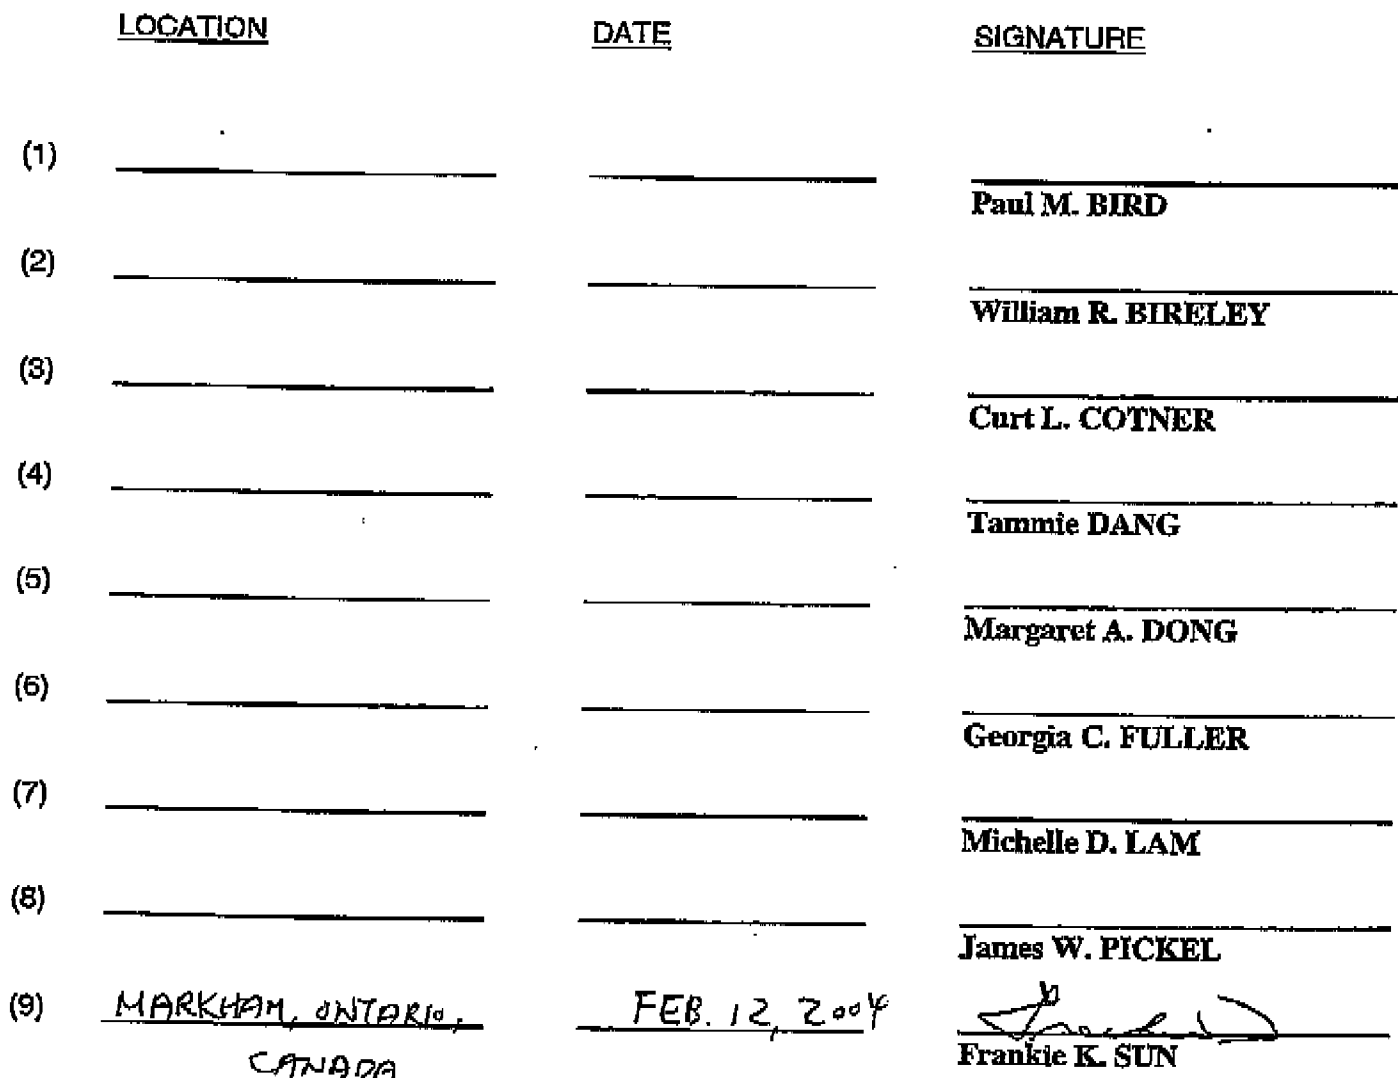 LOCATION DATE SIGNATURE
(1)
Paul M. BIRD
(2)
William R. BIRELEY
(3)
Curt L. COTNER
(4)
Tammie DANG
(5)
Margaret A. DONG
(6)
Georgia C. FULLER
(7)
Michelle D. LAM
(8)
James W. PICKEL
(9) MARKHAM, ONTARIO, FEB. 12, 2004
CANADA Frankie K. SUN